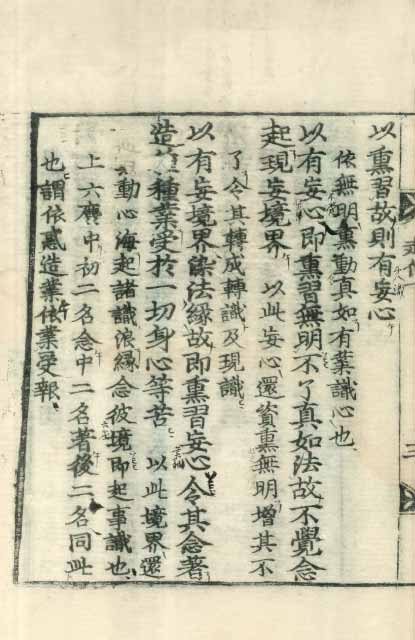 以熏習故則有妄心
依無明熏動真如有業識心也
以有妄心即熏習無明不了真如法故不覺念
起現妄境界 以此妄心還資熏無明增其不
了令其轉成轉識及現識
以有妄境界染法緣故即熏習妄心令其念著
造種種業受於一切身心等苦 以此境界還
動心海起諸識浪緣念彼境即起事識也
上六麁中初二名念中二名著後二名同此
也謂依惑造業依業受報